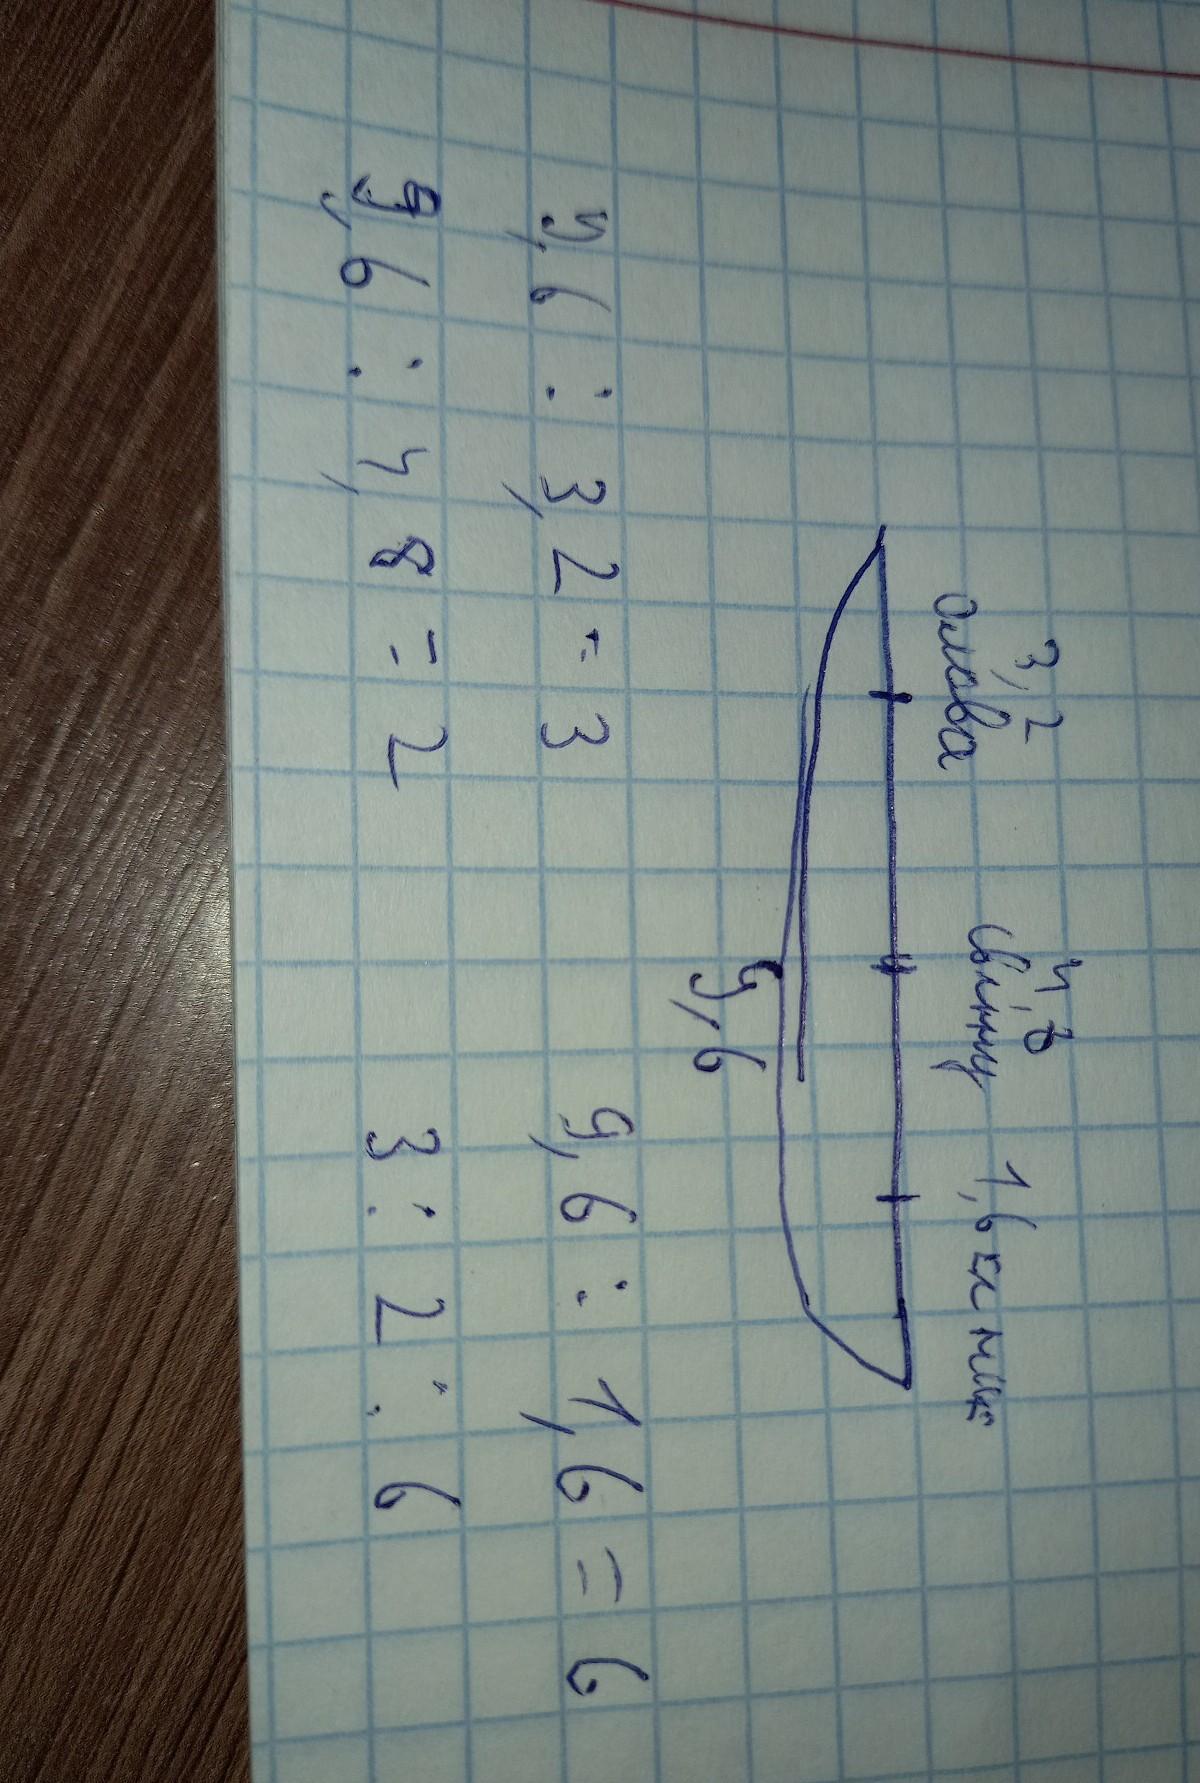 3,2 4,8 1,6 кг
олова свинцу
9,6
9,6 : 3,2 = 3 9,6 : 1,6 = 6
9,6 : 4,8 = 2 3 : 2 : 6